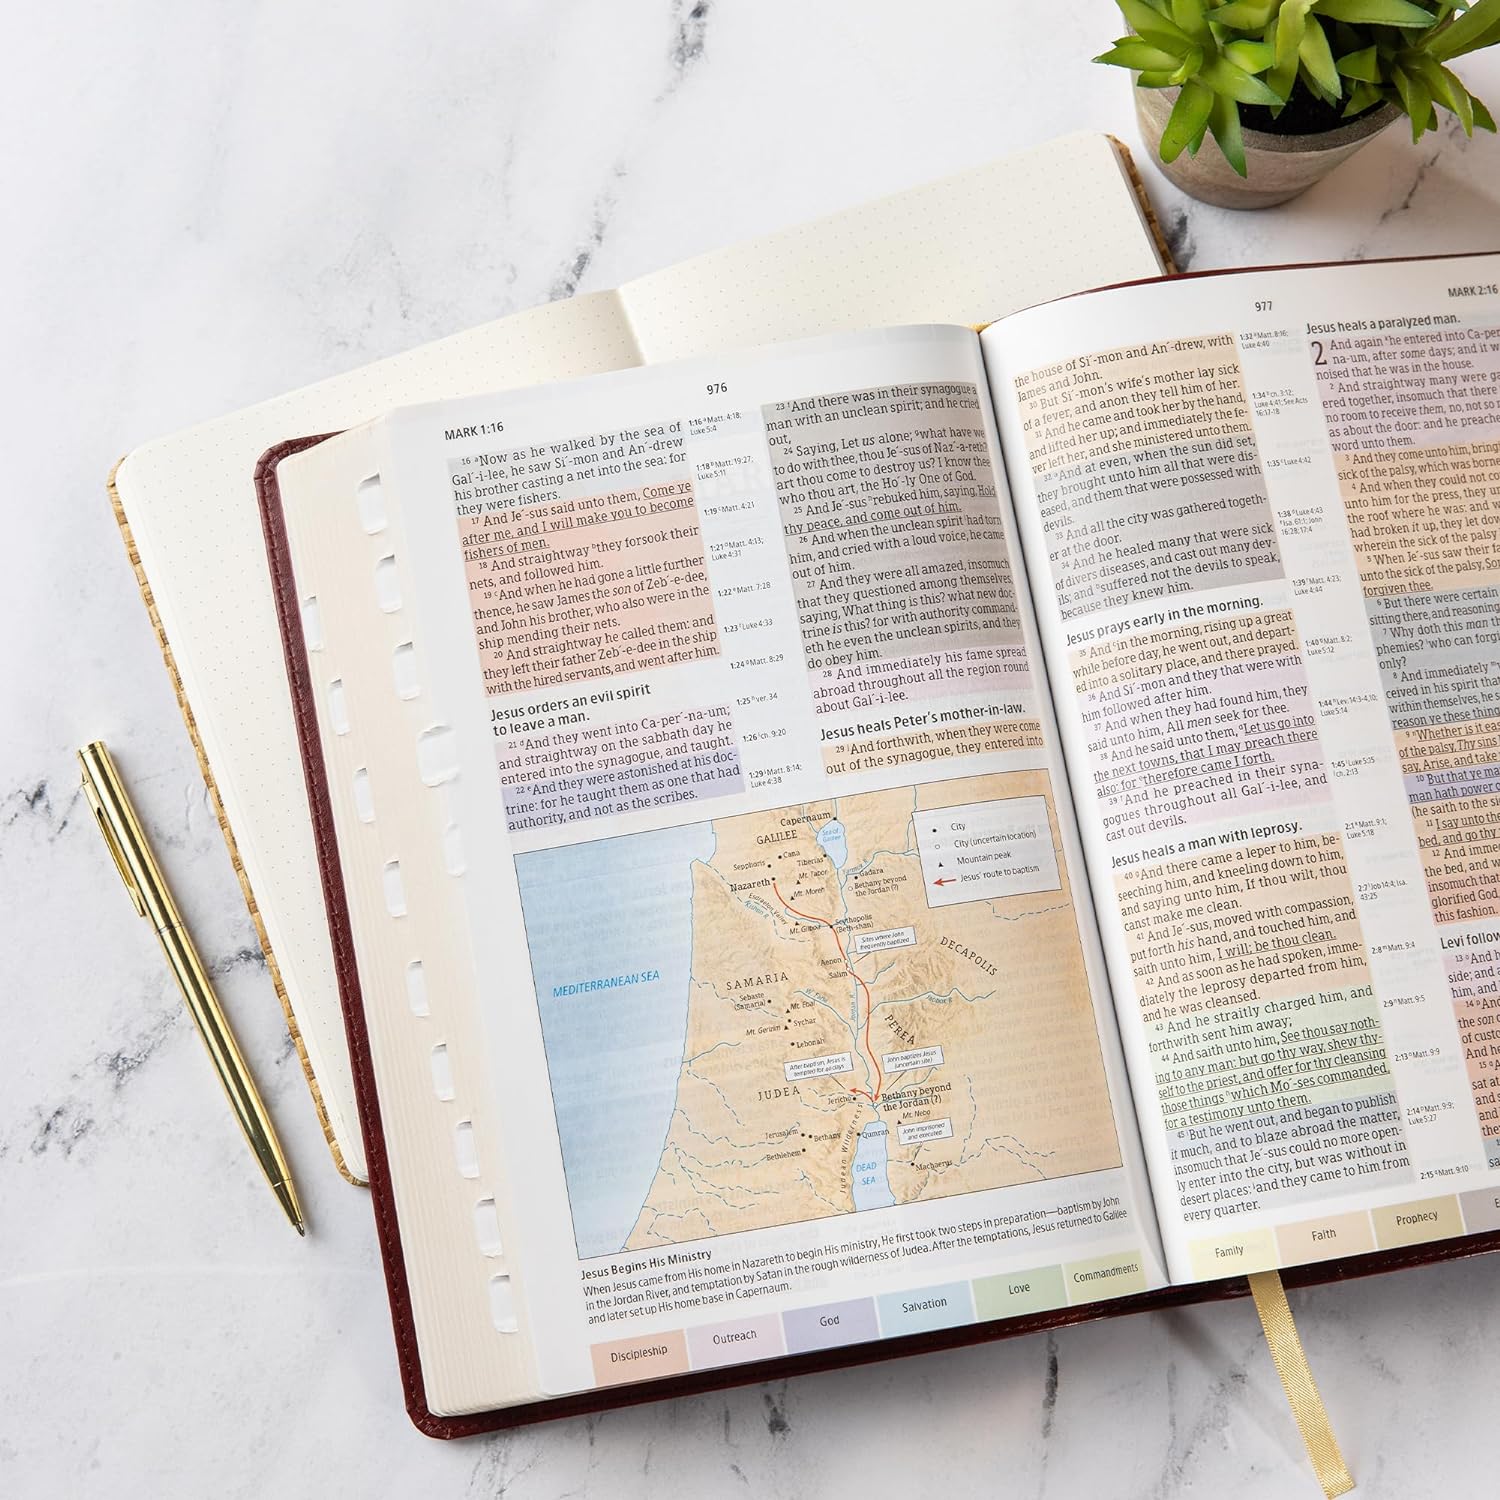 976
MARK 1:16
16 a Now as he walked by the sea of
Gal´-i-lee, he saw Si´-mon and An´-drew
his brother casting a net into the sea: for
they were fishers.
17 And Je´-sus said unto them, Come ye
after me, and I will make you to become
fishers of men.
18 And straightway b they forsook their
nets, and followed him.
19 c And when he had gone a little further
thence, he saw James the son of Zeb´-e-dee,
and John his brother, who also were in the
ship mending their nets.
20 And straightway he called them: and
they left their father Zeb´-e-dee in the ship
with the hired servants, and went after him.
Jesus orders an evil spirit
to leave a man.
21 d And they went into Ca-per´-na-um;
and straightway on the sabbath day he
entered into the synagogue, and taught.
22 e And they were astonished at his doc-
trine: for he taught them as one that had
authority, and not as the scribes.
1:16 a Matt. 4:18;
Luke 5:4
1:18 b Matt. 19:27;
Luke 5:11
1:19 c Matt. 4:21
1:21 d Matt. 4:13;
Luke 4:31
1:22 e Matt. 7:28
1:23 f Luke 4:33
1:24 g Matt. 8:29
1:25 h ver. 34
1:26 i ch. 9:20
1:29 j Matt. 8:14;
Luke 4:38
23 f And there was in their synagogue a
man with an unclean spirit; and he cried
out,
24 Saying, Let us alone; g what have we
to do with thee, thou Je´-sus of Naz´-a-reth?
art thou come to destroy us? I know thee
who thou art, the Ho´-ly One of God.
25 And Je´-sus h rebuked him, saying, Hold
thy peace, and come out of him.
26 And when the unclean spirit i had torn
him, and cried with a loud voice, he came
out of him.
27 And they were all amazed, insomuch
that they questioned among themselves,
saying, What thing is this? what new doc-
trine is this? for with authority command-
eth he even the unclean spirits, and they
do obey him.
28 And immediately his fame spread
abroad throughout all the region round
about Gal´-i-lee.
Jesus heals Peter's mother-in-law.
29 j And forthwith, when they were come
out of the synagogue, they entered into
City
City (uncertain location)
Mountain peak
Jesus' route to baptism
Capernaum
GALILEE
Sea of
Galilee
Cana
Sepphoris
Tiberias
Mt. Tabor
Gadara
Nazareth
Mt. Moreh
Bethany beyond
the Jordan (?)
Mt. Gilboa
Scythopolis
(Beth-shan)
Sites where John
frequently baptized
DECAPOLIS
Aenon
Salim
MEDITERRANEAN SEA
SAMARIA
Sebaste
(Samaria)
Mt. Ebal
Mt. Gerizim
Sychar
Lebonah
Jordan R.
Jabbok R.
PEREA
After baptism, Jesus is
tempted for 40 days
John baptizes Jesus
(uncertain site)
JUDEA
Jericho
Bethany beyond
the Jordan (?)
Mt. Nebo
Jerusalem
Bethany
Qumran
John imprisoned
and executed
Bethlehem
Judean Wilderness
DEAD
SEA
Machaerus
Jesus Begins His Ministry
When Jesus came from His home in Nazareth to begin His ministry, He first took two steps in preparation—baptism by John
in the Jordan River, and temptation by Satan in the rough wilderness of Judea. After the temptations, Jesus returned to Galilee
and later set up His home base in Capernaum.
Discipleship
Outreach
God
Salvation
Love
Commandments
977
MARK 2:16
the house of Si´-mon and An´-drew, with
James and John.
30 But Si´-mon's wife's mother lay sick
of a fever, and anon they tell him of her.
31 And he came and took her by the hand,
and lifted her up; and immediately the fe-
ver left her, and she ministered unto them.
32 k And at even, when the sun did set,
they brought unto him all that were dis-
eased, and them that were possessed with
devils.
33 And all the city was gathered togeth-
er at the door.
34 And he healed many that were sick
of divers diseases, and cast out many dev-
ils; and l suffered not the devils to speak,
because they knew him.
Jesus prays early in the morning.
35 And m in the morning, rising up a great
while before day, he went out, and depart-
ed into a solitary place, and there prayed.
36 And Si´-mon and they that were with
him followed after him.
37 And when they had found him, they
said unto him, All men seek for thee.
38 And he said unto them, n Let us go into
the next towns, that I may preach there
also: for o therefore came I forth.
39 And he preached in their syna-
gogues throughout all Gal´-i-lee, and
cast out devils.
Jesus heals a man with leprosy.
40 q And there came a leper to him, be-
seeching him, and kneeling down to him,
and saying unto him, If thou wilt, thou
canst make me clean.
41 And Je´-sus, moved with compassion,
put forth his hand, and touched him, and
saith unto him, I will; be thou clean.
42 And as soon as he had spoken, imme-
diately the leprosy departed from him,
and he was cleansed.
43 And he straitly charged him, and
forthwith sent him away;
44 And saith unto him, See thou say noth-
ing to any man: but go thy way, shew thy-
self to the priest, and offer for thy cleansing
those things which Mo´-ses commanded,
for a testimony unto them.
45 But he went out, and began to publish
it much, and to blaze abroad the matter,
insomuch that Je´-sus could no more open-
ly enter into the city, but was without in
desert places: and they came to him from
every quarter.
1:32 Matt. 8:16;
Luke 4:40
1:34 ch. 3:12;
Luke 4:41; See Acts
16:17-18
1:35 Luke 4:42
1:38 Luke 4:43
Isa. 61:1; John
16:28; 17:4
1:39 Matt. 4:23;
Luke 4:44
1:40 Matt. 8:2;
Luke 5:12
1:44 Lev. 14:3-4,10;
Luke 5:14
1:45 Luke 5:15
ch. 2:13
2:1 Matt. 9:1;
Luke 5:18
2:7 Job 14:4; Isa.
43:25
2:8 Matt. 9:4
2:9 Matt. 9:5
2:13 Matt. 9:9
2:14 Matt. 9:9;
Luke 5:27
2:15 Matt. 9:10
Jesus heals a paralyzed man.
2 And again a he entered into Ca-per
na-um, after some days; and it w
noised that he was in the house.
2 And straightway many were ga
ered together, insomuch that there
no room to receive them, no, not so
as about the door: and he preache
word unto them.
3 And they come unto him, bring
sick of the palsy, which was borne
4 And when they could not co
unto him for the press, they un
the roof where he was: and w
had broken it up, they let dow
wherein the sick of the palsy
5 When Je´-sus saw their fa
unto the sick of the palsy, Son
forgiven thee.
6 But there were certain
sitting there, and reasoning
7 Why doth this man th
phemies? who can forgiv
only?
8 And immediately
ceived in his spirit that
within themselves, he s
reason ye these thing
9 Whether is it eas
of the palsy, Thy sins
say, Arise, and take
10 But that ye ma
man hath power o
(he saith to the si
11 I say unto the
bed, and go thy
12 And immed
the bed, and w
insomuch that
glorified God,
this fashion.
Levi follow
13 And h
side; and a
him, and
14 And
the son o
of custo
And he
15 A
Family
Faith
Prophecy